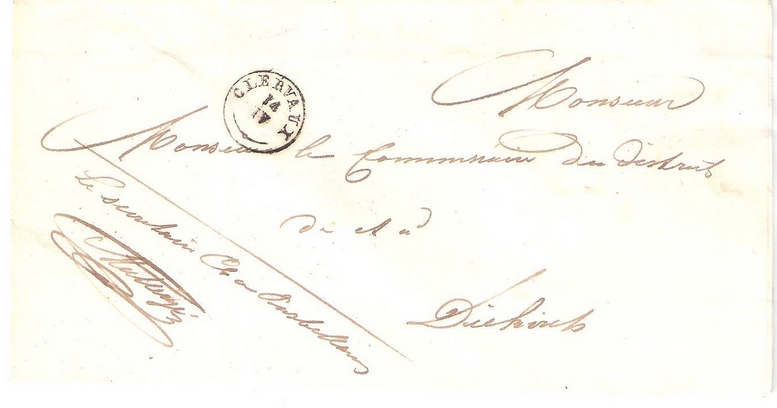 CLERVAUX
14
IV
Monsieur
Monsieur le Commissaire du district
de et à
Diekirch
Le secrétaire